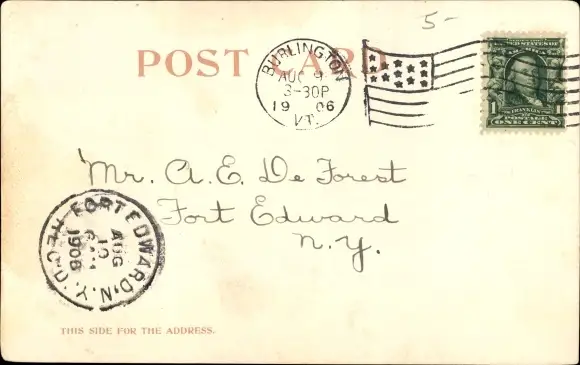 5-
POST CARD
BURLINGTON
AUG 9
3-30P
19 06
VT.
UNITED STATES OF
FRANKLIN
1 POSTAGE 1
ONE CENT
Mr. A. E. De Forest
Fort Edward
N. Y.
FORT EDWARD, N.Y.
REC'D.
AUG
10
1906
THIS SIDE FOR THE ADDRESS.